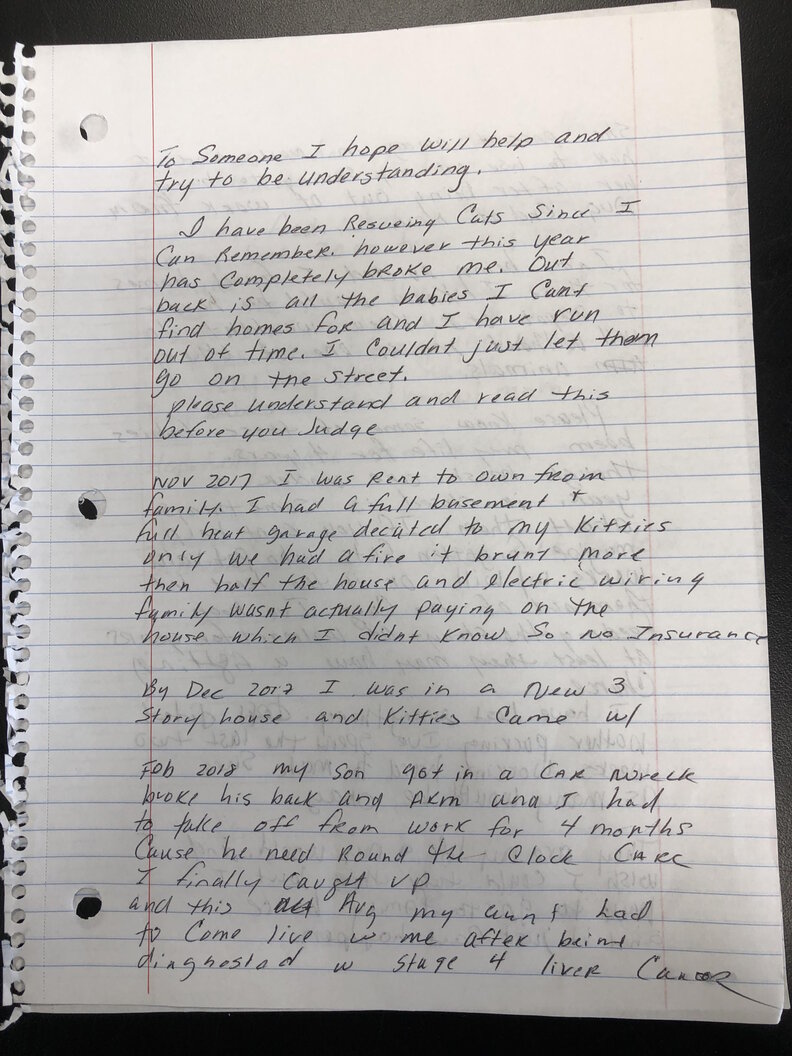 To Someone I hope will help and
try to be understanding.
I have been Resueing Cats Since I
Can Remember. however this year
has Completely broke me. Out
back is all the babies I Cant
find homes for and I have run
out of time. I Couldnt just let them
go on the street.
please understand and read this
before you Judge
NOV 2017 I was Rent to own from
family. I had a full basement +
full heat garage decated to my Kitties
only we had a fire it brunt more
then half the house and electric wiring
family wasnt actually paying on the
house which I didnt Know So No Insurance
By Dec 2017 I was in a New 3
Story house and Kitties Came w/
Feb 2018 my Son got in a CAR wreck
broke his back and ARM and I had
to take off from work for 4 months
Cause he need Round the Clock CARE
I finally caught up
and this Aug my aunt had
to Come live w me after being
diaghosted w stage 4 liver Cancer